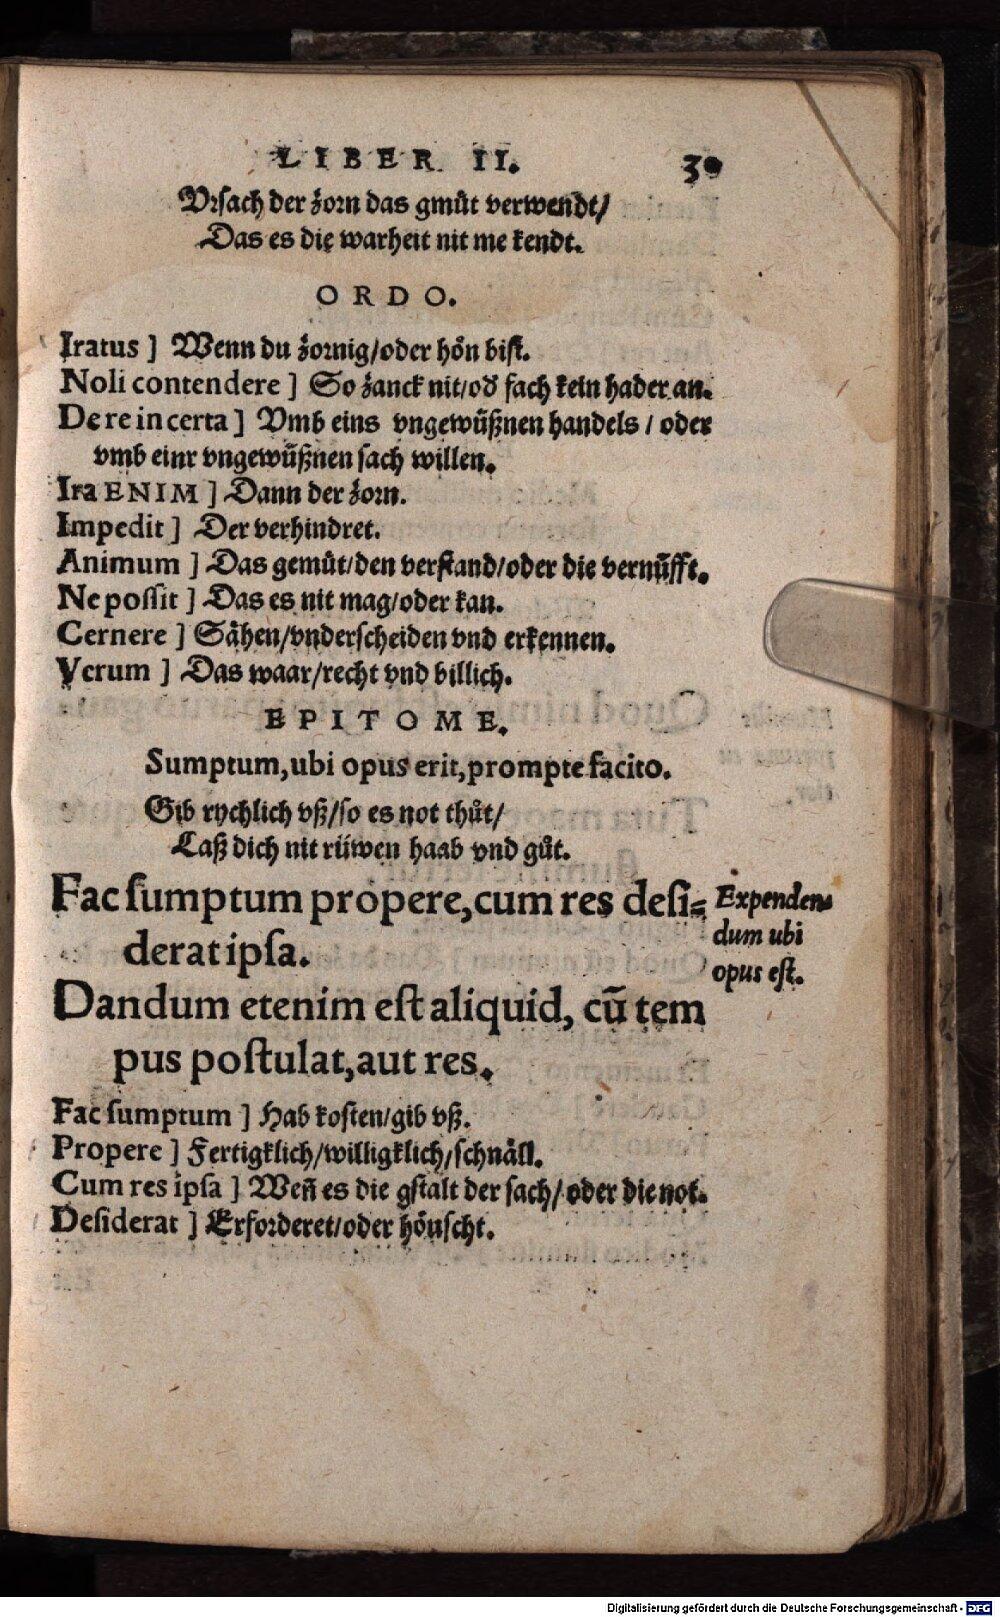 LIBER II. 30
Vrsach der zorn das gmuͤt verwendt/
Das es die warheit nit me kendt.
ORDO.
Iratus ] Wenn du zornig/oder hoͤn bist.
Noli contendere ] So zanck nit/od̕ fach kein hader an.
De re incerta ] Vmb eins vngewuͤßnen handels / oder
vmb einr vngewuͤßnen sach willen.
Ira ENIM ] Dann der zorn.
Impedit ] Der verhindret.
Animum ] Das gemuͤt/den verstand/oder die vernuͤfft.
Ne poſsit ] Das es nit mag/oder kan.
Cernere ] Saͤhen/vnderscheiden vnd erkennen.
Verum ] Das waar/recht vnd billich.
EPITOME.
Sumptum, ubi opus erit, prompte facito.
Gib rychlich vß/so es not thuͦt/
Laß dich nit rüwen haab vnd guͦt.
Fac ſumptum propere, cum res deſi-
derat ipſa.
Expenden
dum ubi
opus eſt.
Dandum etenim eſt aliquid, cū tem
pus poſtulat, aut res.
Fac ſumptum ] Hab kosten/gib vß.
Propere ] Fertigklich/willigklich/schnaͤll.
Cum res ipſa ] Weñ es die gstalt der sach/oder die not.
Deſiderat ] Erforderet/oder hoͤuscht.
Digitalisierung gefördert durch die Deutsche Forschungsgemeinschaft - DFG